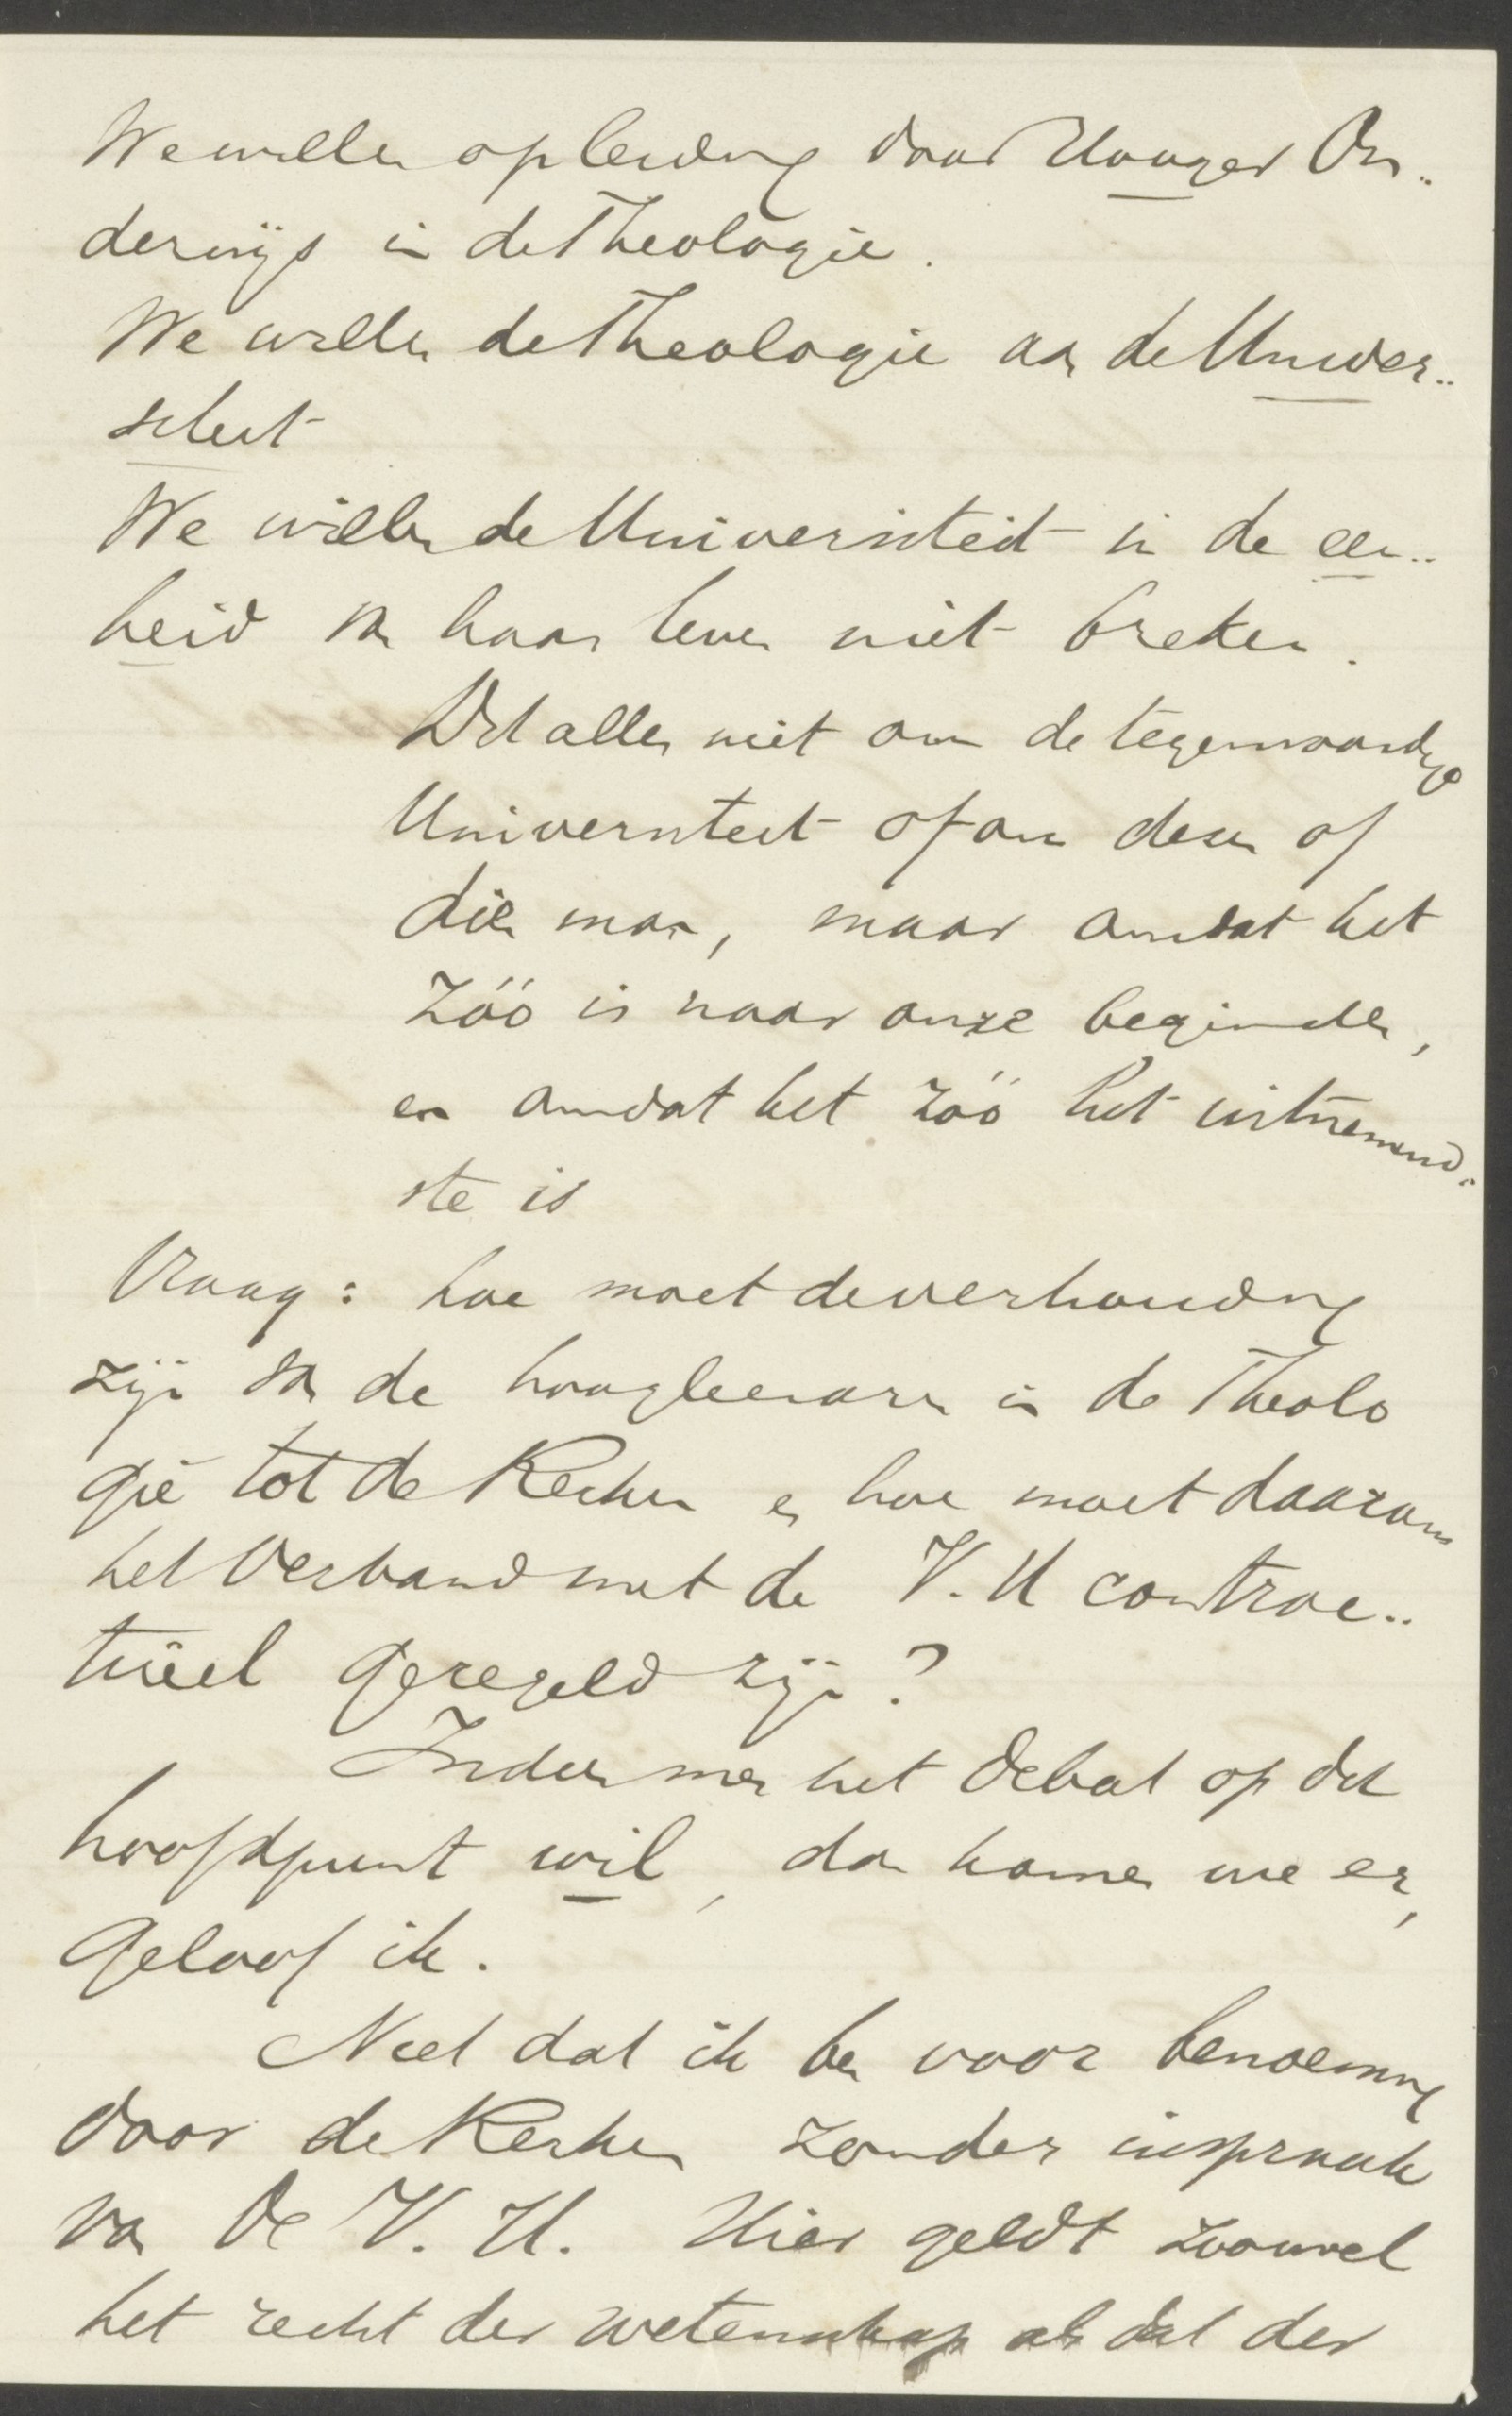 We willen opleiding door Hooger On..
derwijs in de Theologie.
We willen de Theologie aan de Univer..
siteit
We willen de Universiteit in de een..
heid van haar leven niet breken.
Dit alles niet om de tegenwoordige
Universiteit of om dezen of
dien man, maar omdat het
zóó is naar onze beginselen,
en omdat het zóó het uitnemend..
ste is
Vraag: hoe moet de verhouding
zijn van de hoogleeraren in de Theolo
gie tot de Kerken en hoe moet daarom
het Verband met de V. U contrac..
tueel geregeld zijn?
Indien men het Debat op dit
hoofdpunt wil, dan komen we er,
geloof ik.
Niet dat ik ben voor benoeming
door de Kerken zonder inspraak
van De V. U. Hier geldt zoowel
het recht der wetenschap als dat der